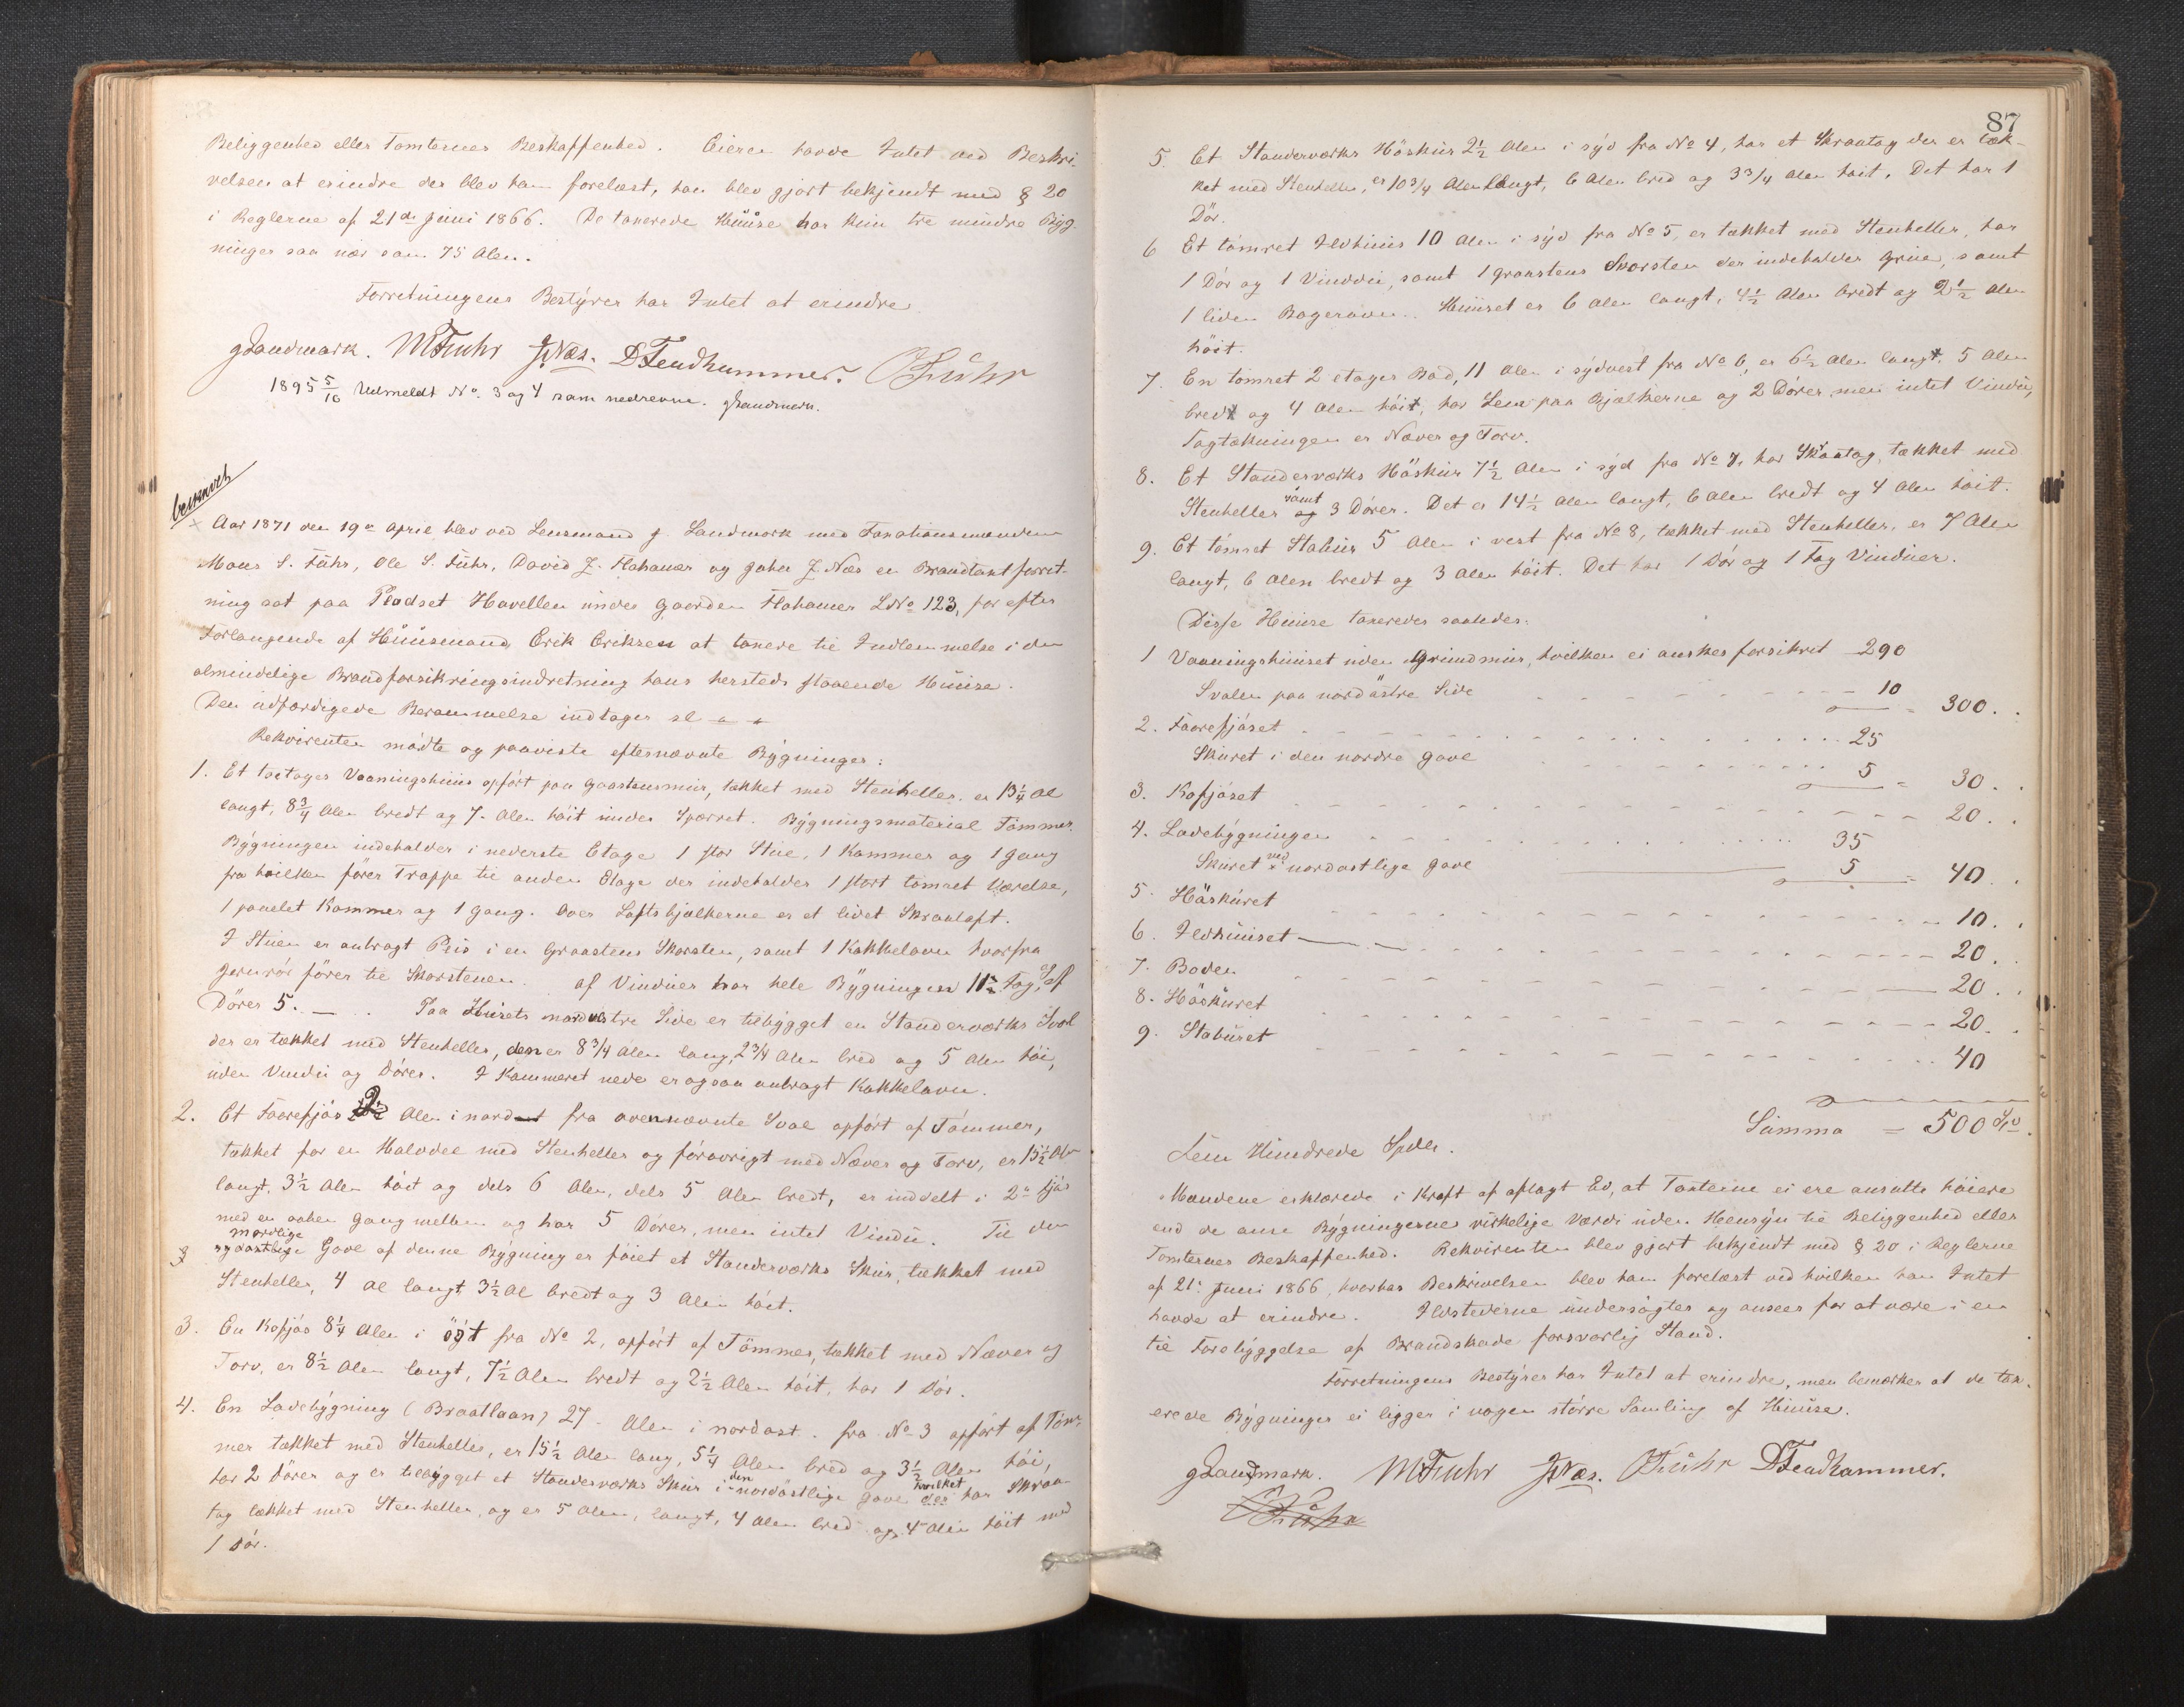 Beliggenhed eller Tomternes Beskaffenhed. Eieren havde Intet ved Beskri-
velsen at erindre der blev ham forelæst, han blev gjort bekjendt med § 20
i Reglerne af 21de Juni 1866. De taxerede Huuse har kun tre mindre Byg-
ninger saa nær som 75 Alen.
Forretningens Bestyrer har Intet at erindre
G Landmark. M Fuhr J Næs. D Flahammer. O Fuhr
1895 5/10 Udmeldt No. 3 og 4 som nedrevne. G Landmark.
beskrevet
Aar 1871 den 19de April blev ved Lensmand G. Landmark med Taxationsmændene
Mons S. Fuhr, Ole S. Fuhr, David J. Flahamer og Johan J. Næs en Brandtaxtforret-
ning sat paa Pladset Havellen under Gaarden Flahamer LNo 123, for efter
Forlangende af Huusmand Erik Eriksen at taxere til Indlemmelse i den
almindelige Brandforsikringsindretning hans hersteds staaende Huuse.
Den udfærdigede Berammelse indtages sl
Rekvirenten mødte og paaviste efternævnte Bygninger:
1. Et toetages Vaaningshuus opført paa Graastensmuur, tækket med Stenheller, er 13 1/4 Al
langt, 8 3/4 Alen bredt og 7. Alen høit under Sparret. Bygningsmaterial Tømmer.
Bygningen indeholder i nederste Etage 1 stor Stue, 1 Kammer og 1 Gang
fra hvilken fører Trappe til anden Etage der indeholder 1 stort tømret Værelse,
1 panelet Kammer og 1 Gang. Over Loftsbjælkerne er et lidet Skraaloft.
I Stuen er anbragt Peis i en Graastens Skorsten, samt 1 Kakkelovn hvorfra
Jernrør fører til Skorstenen. af Vinduer har hele Bygningen 11 Fag, og af
Døre 5. — Paa Husets nordøstre Side er tilbygget en Standerværks Sval
der er tækket med Stenheller, den er 8 3/4 Alen lang, 2 3/4 Alen bred og 5 Alen høi,
uden Vindu og Dører. I Kammeret nede er ogsaa anbragt Kakkelovn.
2. Et Faarefjøs 2 Alen i nord fra ovennævnte Sval opført af Tømmer,
tækket for en Halvdel med Stenheller og forøvrigt med Næver og Torv, er 15 1/2 Alen
langt, 3 1/2 Alen høit og dels 6 Alen, dels 5 Alen bredt, er inddelt i 2de Fjøs
med en aaben Gang mellem og har 5 Dører, men intet Vindu. Til den
nordlige
sydøstlige Gavl af denne Bygning er føiet et Standerværks Skur, tækket med
Stenheller, 4 Al langt, 3 1/2 Al bredt og 3 Alen høit.
3. En Kofjøs 8 1/4 Alen i øst fra No 2, opført af Tømmer, tækket med Næver og
Torv, er 8 1/2 Alen langt, 7 1/2 Alen bredt og 2 1/2 Alen høit, har 1 Dør.
4. En Ladebygning (Braatlaan) 27 Alen i nordost fra No 3 opført af Tøm-
mer tækket med Stenheller, er 15 1/2 Alen lang, 5 1/4 Alen bred og 3 1/2 Alen høi,
har 2 Dører og er tilbygget et Standerværks Skur i den nordøstlige Gavl hvilket der har Skraa-
tag tækket med Stenheller, og er 5 Alen, langt, 4 Alen bred og 4 Alen høit med
1 Dør.
87
5. Et Standerværks Høskur 2 1/2 Alen i syd fra No 4, har et Skraatag der er tæk-
ket med Stenheller, er 10 3/4 Alen langt, 6 Alen bred og 3 3/4 Alen høit. Det har 1
Dør.
6 Et tømret Ildhuus 10 Alen i syd fra No 5, er tækket med Stenheller, har
1 Dør og 1 Vinddu, samt 1 graastens Skorsten der indeholder Grue, samt
1 liden Bagerovn. Huuset er 6 Alen langt, 4 1/2 Alen bredt og 2 1/2 Alen
høit.
7. En tømret 2 etages Bod, 11 Alen i sydvest fra No 6, er 6 1/2 Alen lang, 5 Alen
bred og 4 Alen høi, har Lem paa Bjælkerne og 2 Dører, men intet Vindu,
Tagtækningen er Næver og Torv.
8. Et Standerværks Höskur 7 1/2 Alen i syd fra No 7, har Skraatag, tækket med
Stenheller samt og 3 Dører. Det er 14 1/2 Alen langt, 6 Alen bredt og 4 Alen høit.
9. Et tömret Stabur 5 Alen i vest fra No 8, tækket med Stenheller, er 7 Alen
langt, 6 Alen bredt og 3 Alen høit. Det har 1 Dør og 1 Fag Vinduer.
Disse Huuse taxeredes saaledes:
1 Vaaningshuuset uden Grundmuur, hvilken ei ønskes forsikret 290
Svalen paa nordøstre Side 10 300.
2. Faarefjøset 25
Skuret i den nordre Gavl 5 = 30.
3. Kofjøset 20.
4. Ladebygningen 35
Skuret ved nordøstlige Gavl 5 = 40.
5. Høskuret 10.
6. Ildhuuset 20.
7. Boden 20.
8. Høskuret 20.
9. Staburet 40
Summa = 500 Spd.
Fem Hundrede Spdlr.
Mændene erklærede i Kraft af aflagt Ed, at Taxterne ei ere ansatte høiere
end de anse Bygningernes virkelige Værdi uden Hensyn til Beliggenhed eller
Tomternes Beskaffenhed. Rekvirenten blev gjort bekjendt med § 20 i Reglerne
af 21. Juni 1866, hvorhos Beskrivelsen blev ham forelæst ved hvilken han Intet
havde at erindre. Ildstederne undersøgtes og ansees for at være i en
til Forebyggelse af Brandskade forsvarlig Stand.
Forretningens Bestyrer har Intet at erindre, men bemærker at de tax-
erede Bygninger ei ligger i nogen større Samling af Huuse.
G Landmark. M Fuhr J Næs. O Fuhr D Flahammer.
O Fuhr